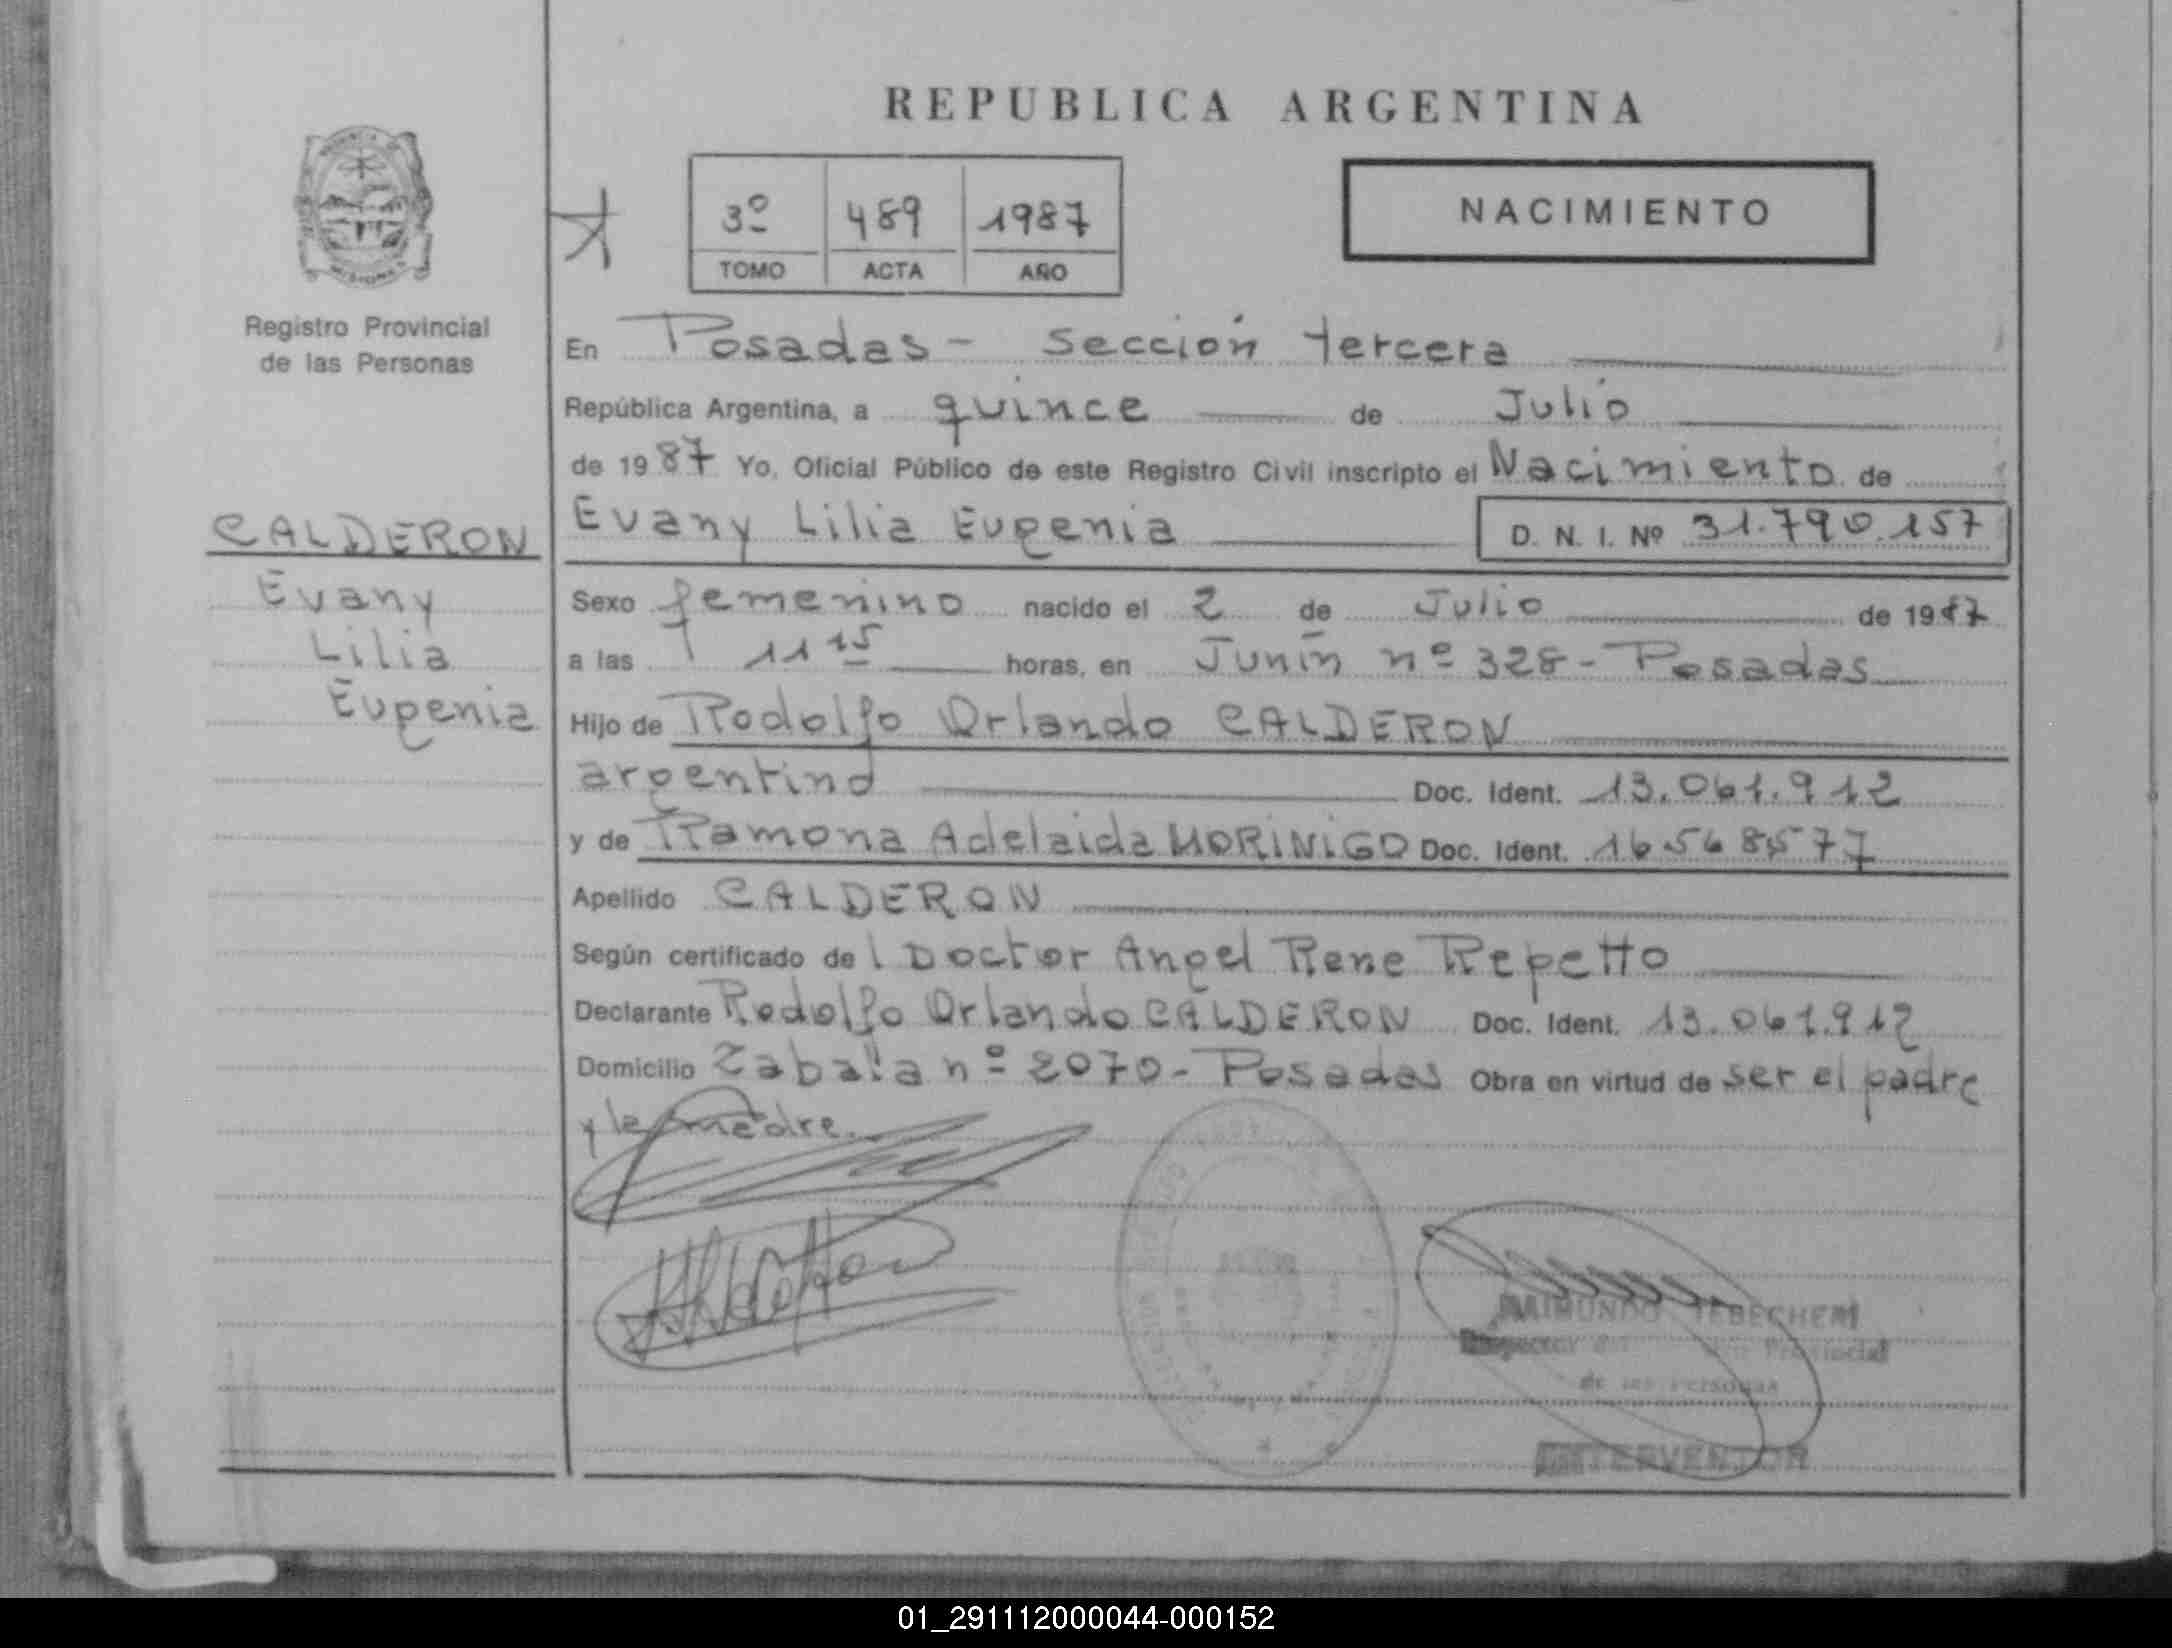 REPUBLICA ARGENTINA
3º 489 1987
TOMO ACTA AÑO
NACIMIENTO
Registro Provincial
de las Personas
En Posadas - sección tercera
República Argentina, a quince de Julio
de 1987 Yo, Oficial Público de este Registro Civil inscripto el Nacimiento de
Evany Lilia Eugenia D. N. I. Nº 31.790.157
CALDERON
Evany
Lilia
Eugenia
Sexo femenino nacido el 2 de Julio de 1987
a las 11 15 horas, en Junín nº 328 - Posadas
Hijo de Rodolfo Orlando CALDERON
argentino Doc. Ident. 13.061.912
y de Ramona Adelaida MORINIGO Doc. Ident. 16.568.577
Apellido CALDERON
Según certificado del Doctor Angel Rene Repetto
Declarante Rodolfo Orlando CALDERON Doc. Ident. 13.061.912
Domicilio Zabala nº 2070 - Posadas Obra en virtud de ser el padre
y la madre.
RAIMUNDO TEBECHERI
Inspector del Provincial
de las Personas
INTERVENTOR
01_291112000044-000152